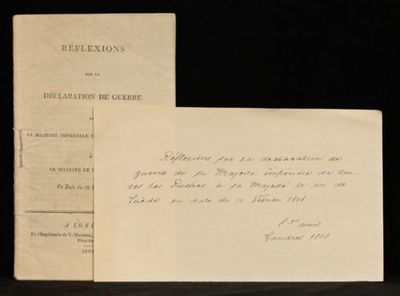 RÉFLEXIONS
SUR LA
DÉCLARATION DE GUERRE
SA MAJESTÉ IMPÉRIALE
À
SA MAJESTÉ LE
En Date du 10
A LON
De l'Imprimerie de T. Harper,
Réflexions sur la déclaration de
guerre de sa Majesté impériale de tou
tes les Russies à sa Majesté le roi de
Suède en date du 10 Février 1808
Londres 1808